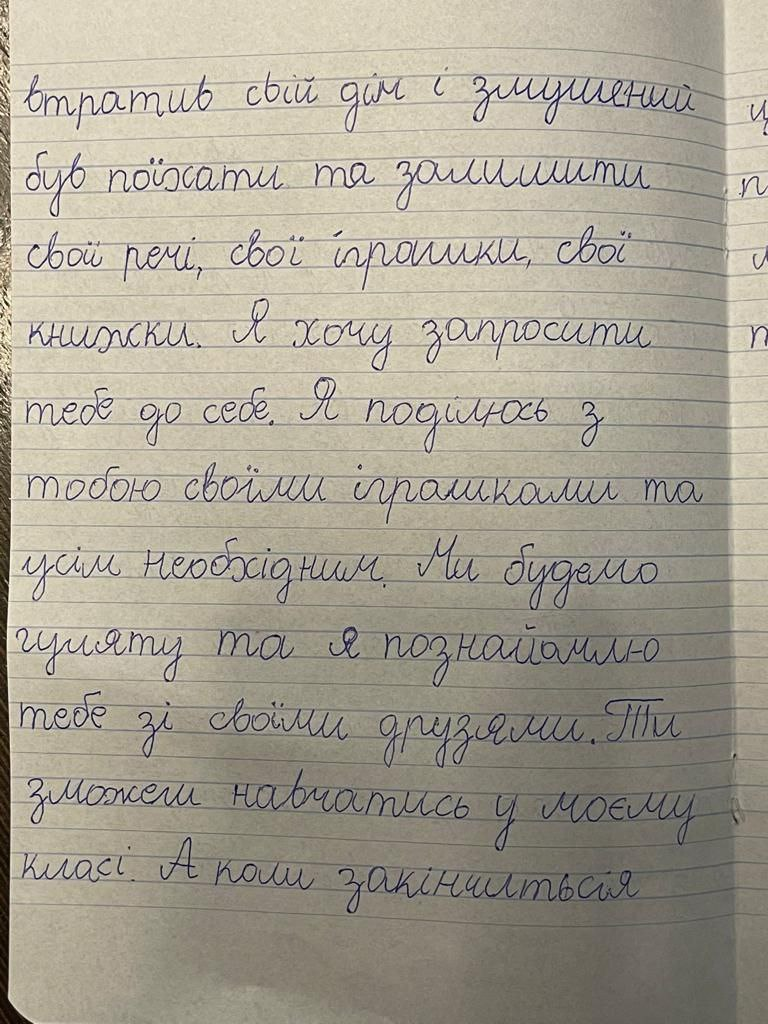 втратив свій дім і змушений
був поїхати та залишити
свої речі, свої іграшки, свої
книжки. Я хочу запросити
тебе до себе. Я поділюсь з
тобою своїми іграшками та
усім необхідним. Ми будемо
гуляту та я познайомлю
тебе зі своїми друзями. Ти
зможеш навчатись у моєму
класі. А коли